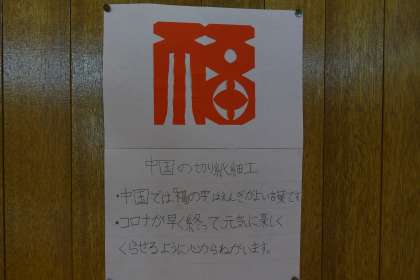 福
中国の切り紙細工
・中国では「福の字はえんぎがよい言葉です
・コロナが早く終って元気に楽しく
くらせるように心からねがいます。